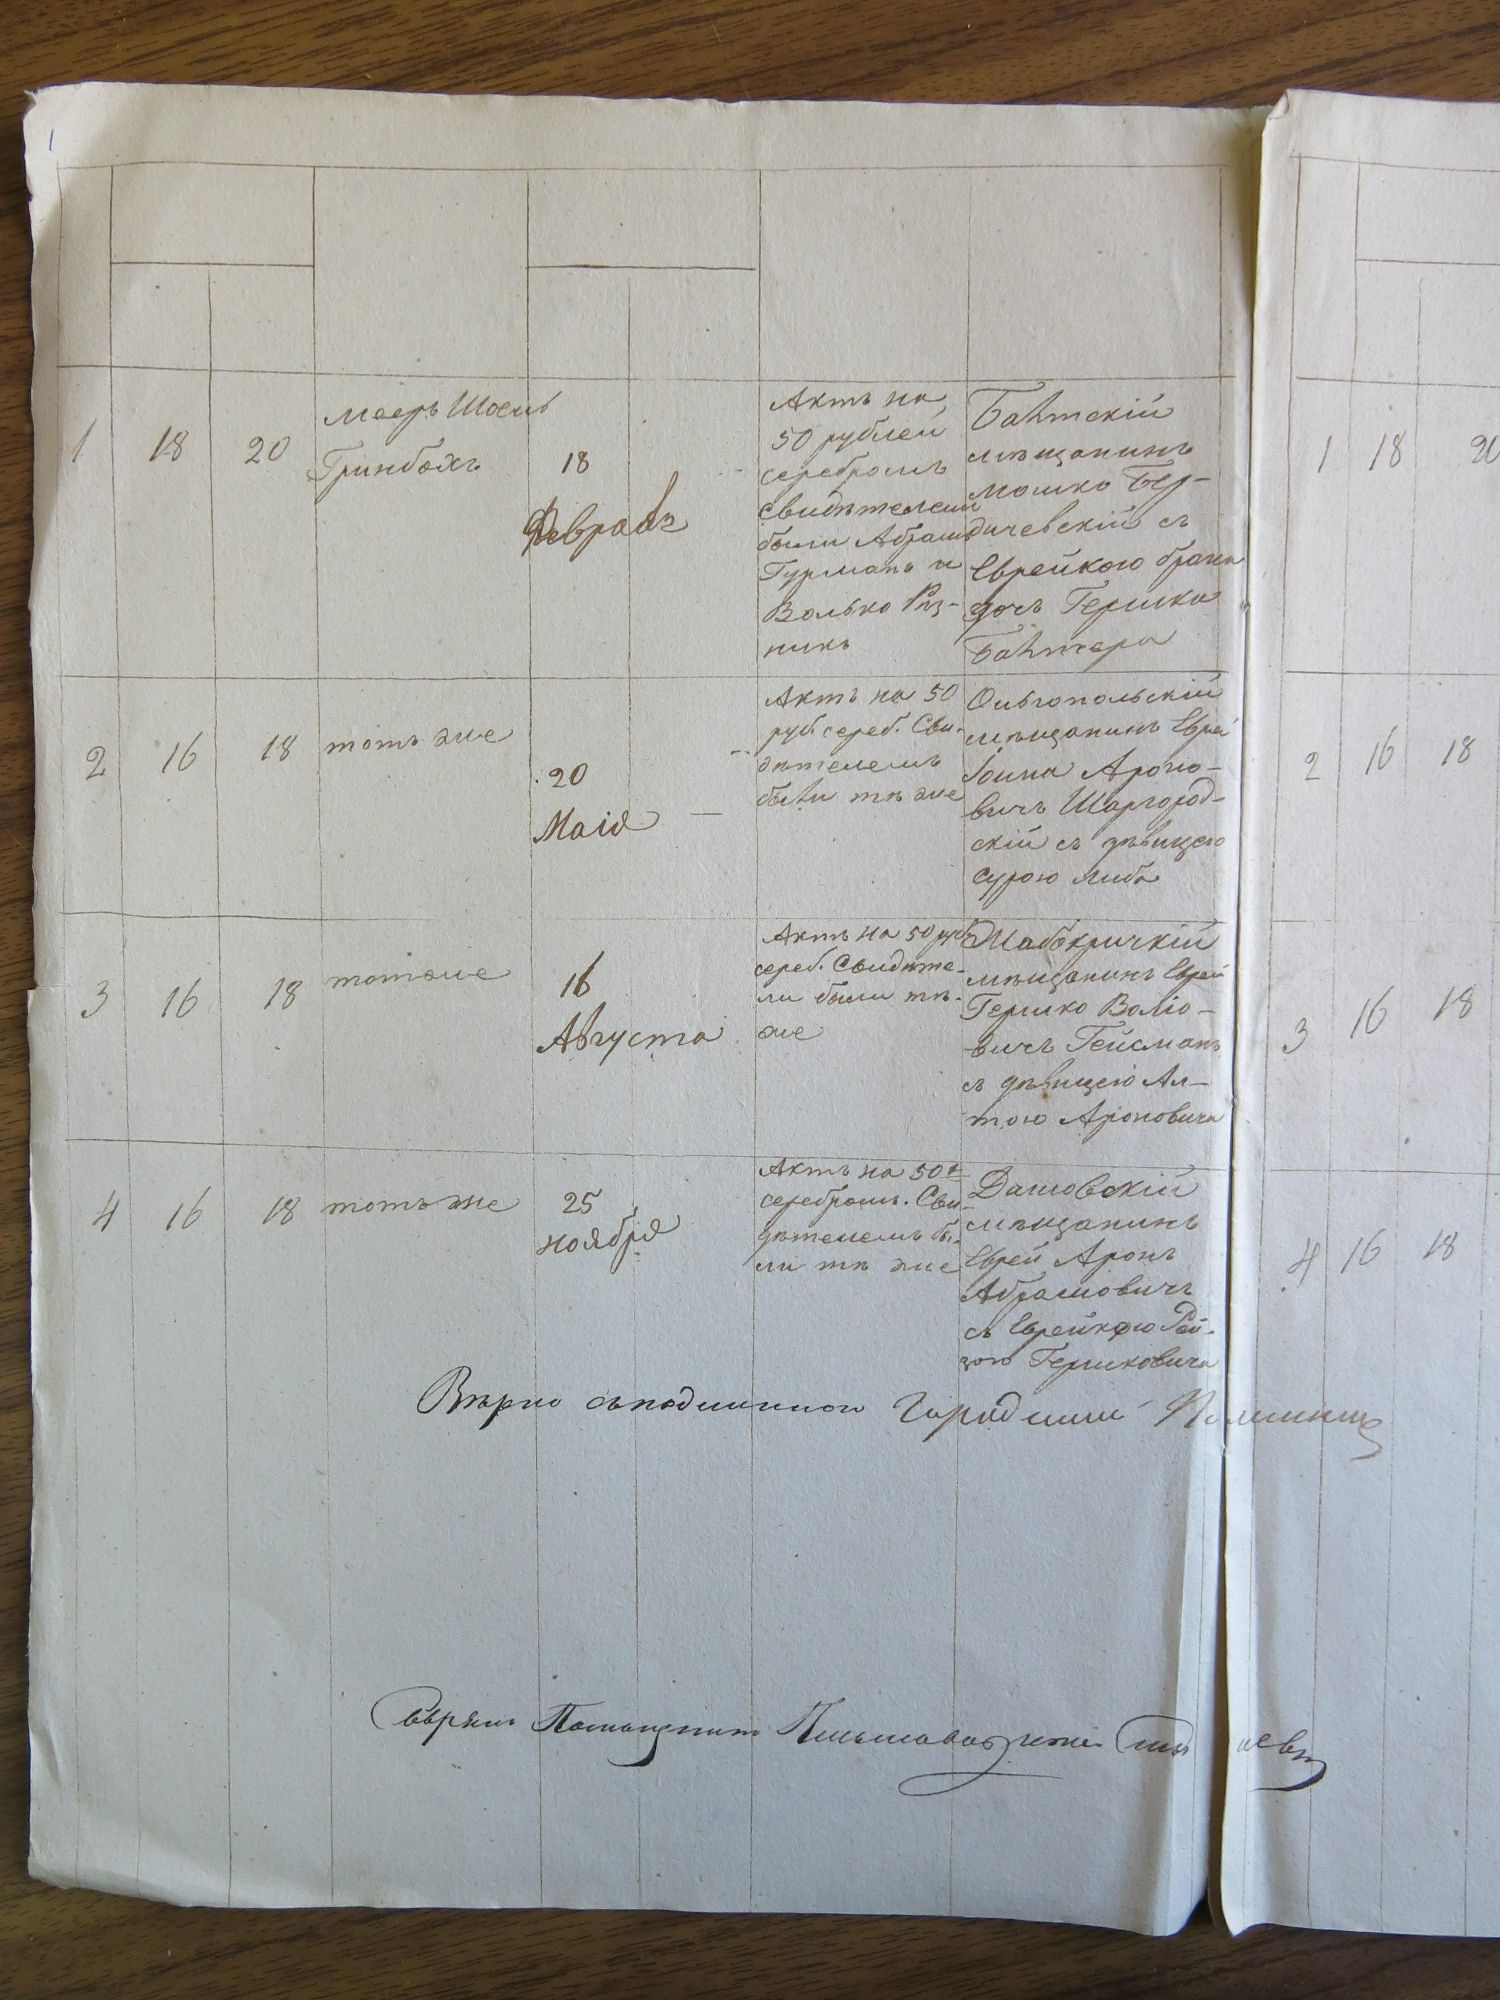 1
1
18
20
Меер Шоель
Гринбохъ
18
Февраля
Актъ на
50 рублей
серебромъ
свидѣтелеми
были Абрамъ
Гурманъ и
Волько Рез-
никъ
мѣщанинъ
Мошко Бер-
дичевскій съ
Еврейкою
дочь Гершка
2
16
18
тотъ же
20
Маія
Актъ на 50
руб. сереб. Сви-
дѣтелемъ
были тѣ же
Ольгопольскій
мѣщанинъ Еврей
Іоина Ароно-
вичъ Шаргород-
скій съ дѣвицею
Сурою Либа
3
16
18
тотже
16
Августа
Актъ на 50 руб.
сереб. Свидѣте-
ли были тѣ-
же
Жабокрицкій
мѣщанинъ Еврей
Гершко Воліо-
вичъ Гейсманъ
съ дѣвицею Ал-
тою Ароновича
4
16
18
тотъ же
25
ноября
Актъ на 50
серебромъ. Сви-
дѣтелемъ бы-
ли тѣ же
Дашовскій
мѣщанинъ
Еврей Аронъ
Абрамовичъ
съ Еврейкою Рей-
зою Гершковича
Вѣрно съ подлинной Городничій
Свѣрялъ Помощникъ Письмоводителя
1
18
20
2
16
18
3
16
18
4
16
18